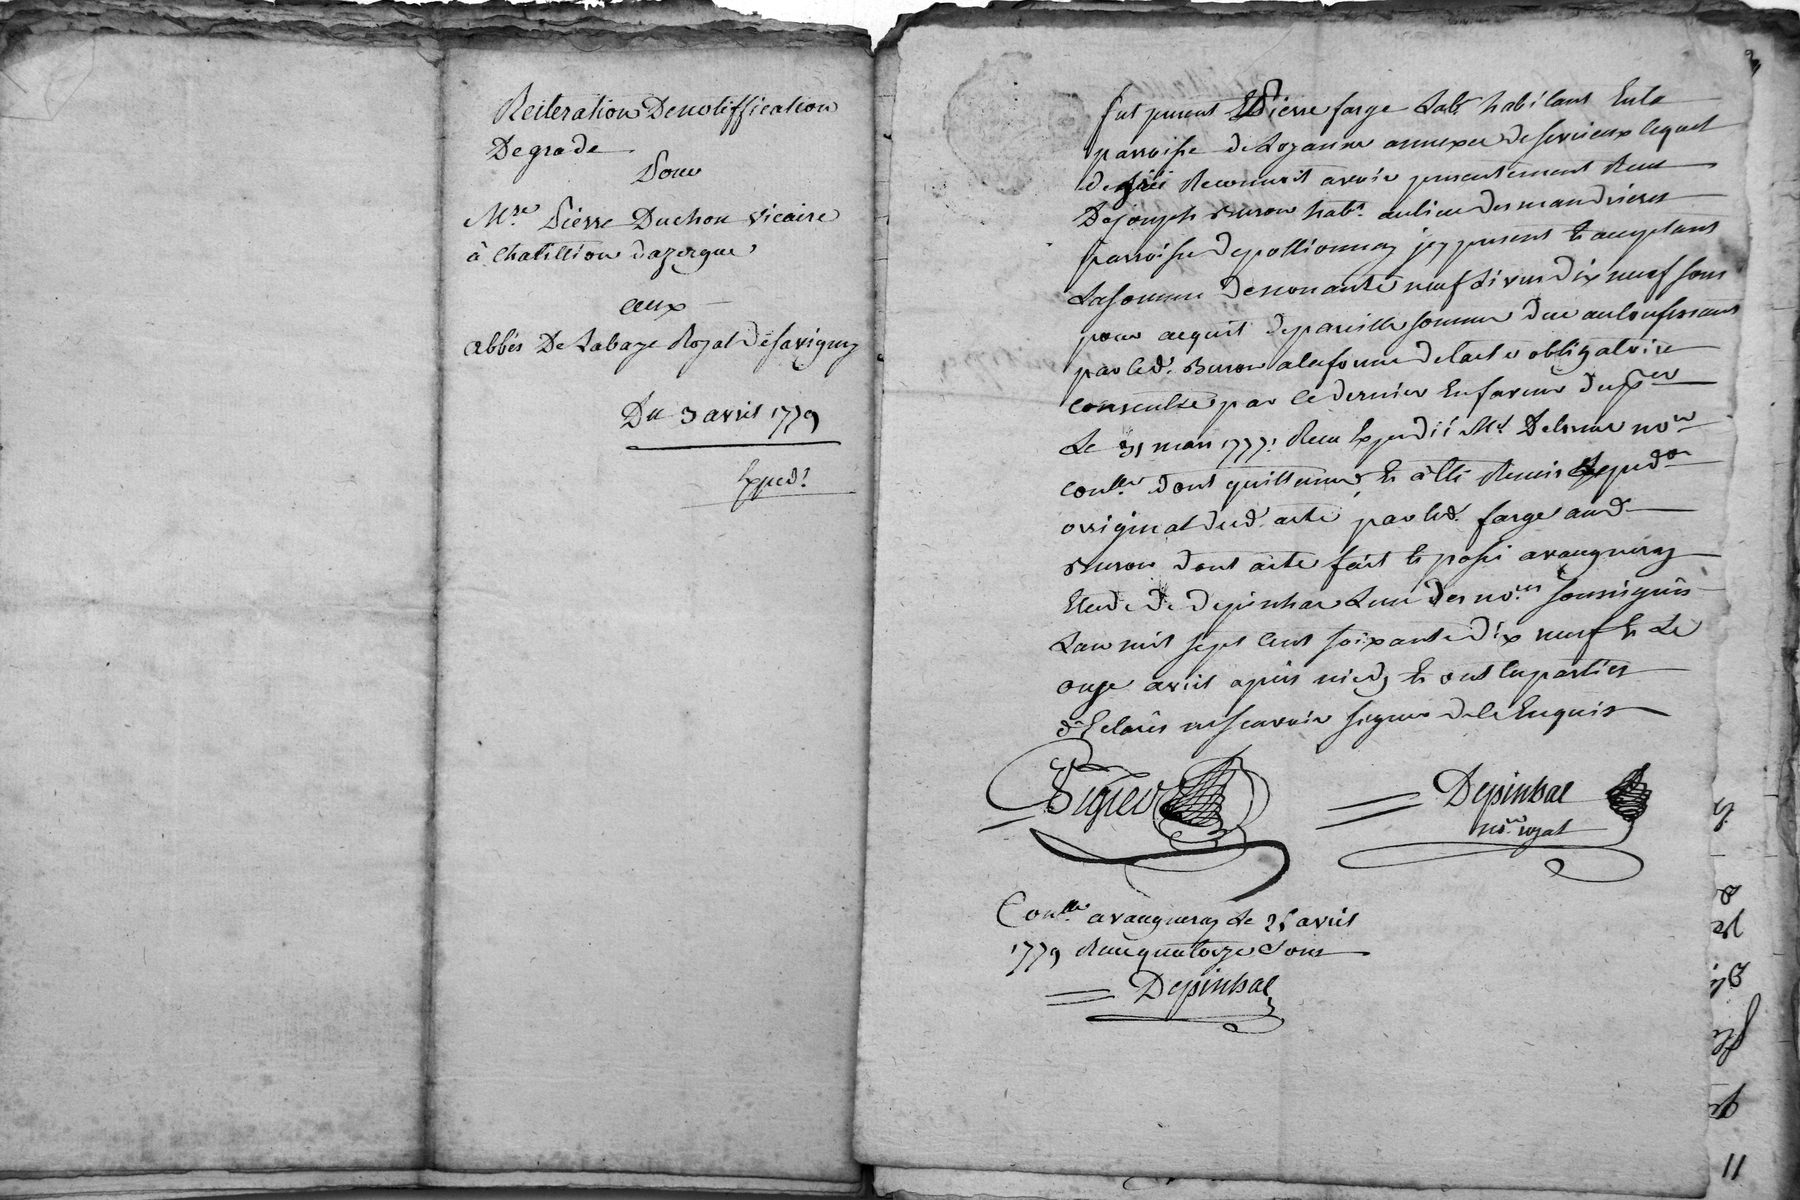 Reiteration Denotiffication
Degrade
Pour
Mre Pierre Duchon Vicaire
à Chatillion dazergue
aux
abbés De Labaye Royal de Savigny
Du 3 avril 1779
Exped.
fut present Pierre farge Lab. habitant En la
parroisse de annexe de lequel
de gré Reconnoit avoir presentement Receu
De Joseph habt. au lieu des mandrieres
parroisse de pollionnay jcy present & acceptant
La somme de nonante neuf Livres dix neuf sous
pour acquit de pareille somme due au Confessant
par led. a la forme de lacte obligatoire
par le dernier En faveur du per
Le 31 mars 1777. Receu Expedié Me. Delorme nore
conllé dont quittance, & a Eté Remis Expedon
original dud. acte par led. farge aud.
dont acte fait & passé a vaugneray
Etude De Depinhac Lun des nores soussignés
Lan mil sept cent soixante dix neuf & Le
onze avril apres midy & ont Les parties
dEclarés ne scavoir signer de ce Enquis
Depinhac
nore royal
Conllé a vaugneray Le 25 avril
1779 Receu quatorze sous
Depinhac